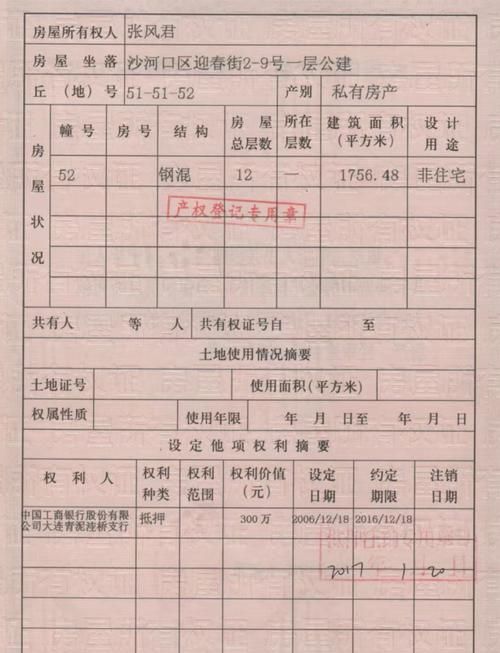 房屋所有权人 张风君
房屋坐落 沙河口区迎春街2-9号一层公建
丘（地）号 51-51-52 产别 私有房产
房屋状况
幢号 房号 结构 房屋总层数 所在层数 建筑面积（平方米） 设计用途
52 钢混 12 一 1756.48 非住宅
产权登记专用章
共有人 等 人 共有权证号自 至
土地使用情况摘要
土地证号 使用面积(平方米)
权属性质 使用年限 年 月 日至 年 月 日
设定他项权利摘要
权利人 权利种类 权利范围 权利价值（元） 设定日期 约定期限 注销日期
中国工商银行股份有限公司大连青泥洼桥支行 抵押 300万 2006/12/18 2016/12/18
2017 1 20